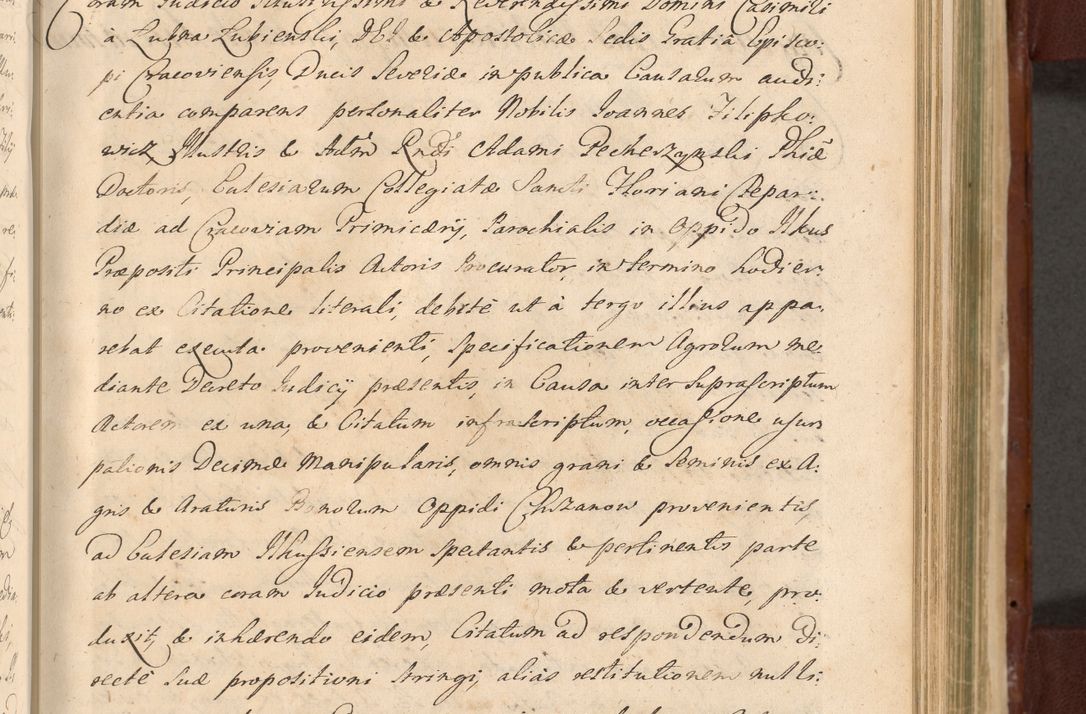 oram Judicio Illustrissimi & Reverendissimi Domini Casimiri
à Łubna Łubienski, DEI & Apostolicæ Sedis Gratia Episco:
pi Cracoviensis, Ducis Severiæ in publica Causarum audi:
entia comparens personaliter Nobilis Joannes Filipko:
wicz Illustris & Adm Rndi Adami Pecherzynski Phiæ
Doctoris, Eclesiarum Collegiatæ Sancti Floriani Clepar:
diæ ad Cracoviam Primicerij, Parochialis in Oppido Ilkus
Præpositi Principalis Actoris Procurator, in termino hodier:
no ex Citatione literali, debitè ut à tergo illius appa:
rebat executa provenienti, Specificationem Agrorum me:
diante Decreto Judicij præsentis, in Causa inter Suprascriptum
Actorem ex una, & Citatum infrascriptum, occasione usur
pationis Decimæ Manipularis, omnis grani & Seminis ex A:
gris & Araturis Bonorum Oppidi Chrzanow provenientis,
ad Eclesiam Ilkussiensem Spectantis & pertinentis parte
ab altera coram Judicio præsenti mota & vertente, pro:
duxit, & inhærendo eidem, Citatum ad respondendum di:
rectè Suæ propositioni stringi, alias restitutionem nulli: